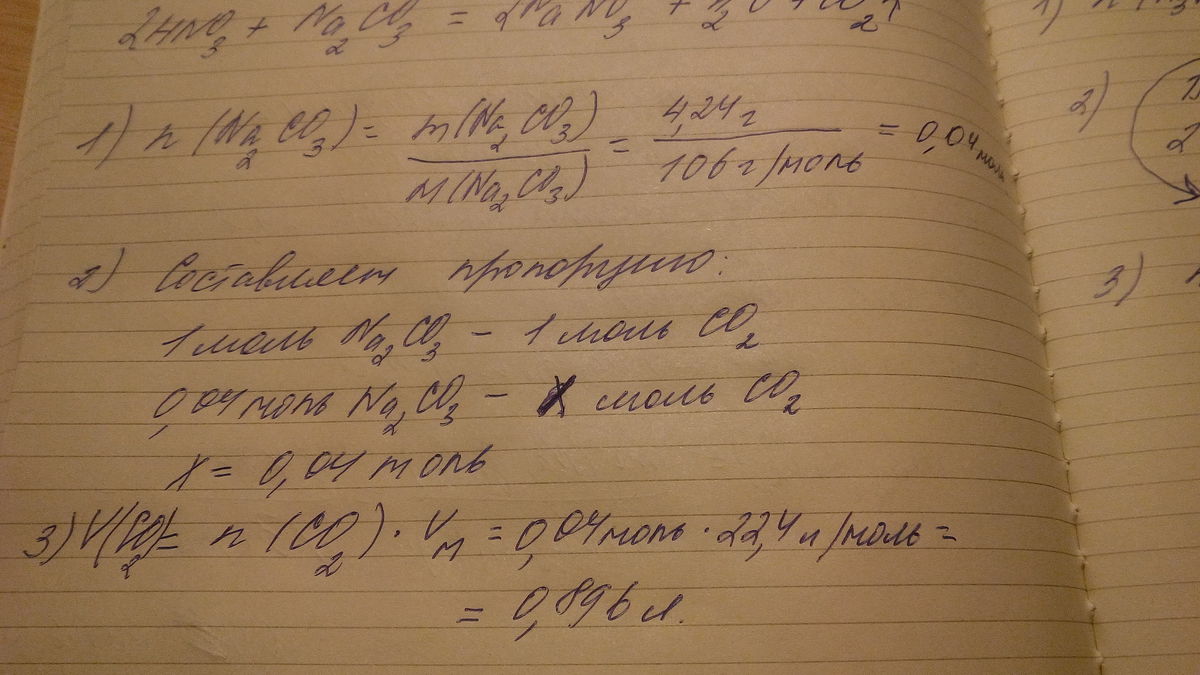 2HNO₃ + Na₂CO₃ = 2NaNO₃ + H₂O + CO₂↑
1) n (Na₂CO₃) = m(Na₂CO₃) / M(Na₂CO₃) = 4,24 г / 106 г/моль = 0,04 моль
2) Составляем пропорцию:
1 моль Na₂CO₃ – 1 моль CO₂
0,04 моль Na₂CO₃ – X моль CO₂
x = 0,04 моль
3) V(CO₂) = n (CO₂) · Vм = 0,04 моль · 22,4 л/моль =
= 0,896 л.
1)
2)
3)